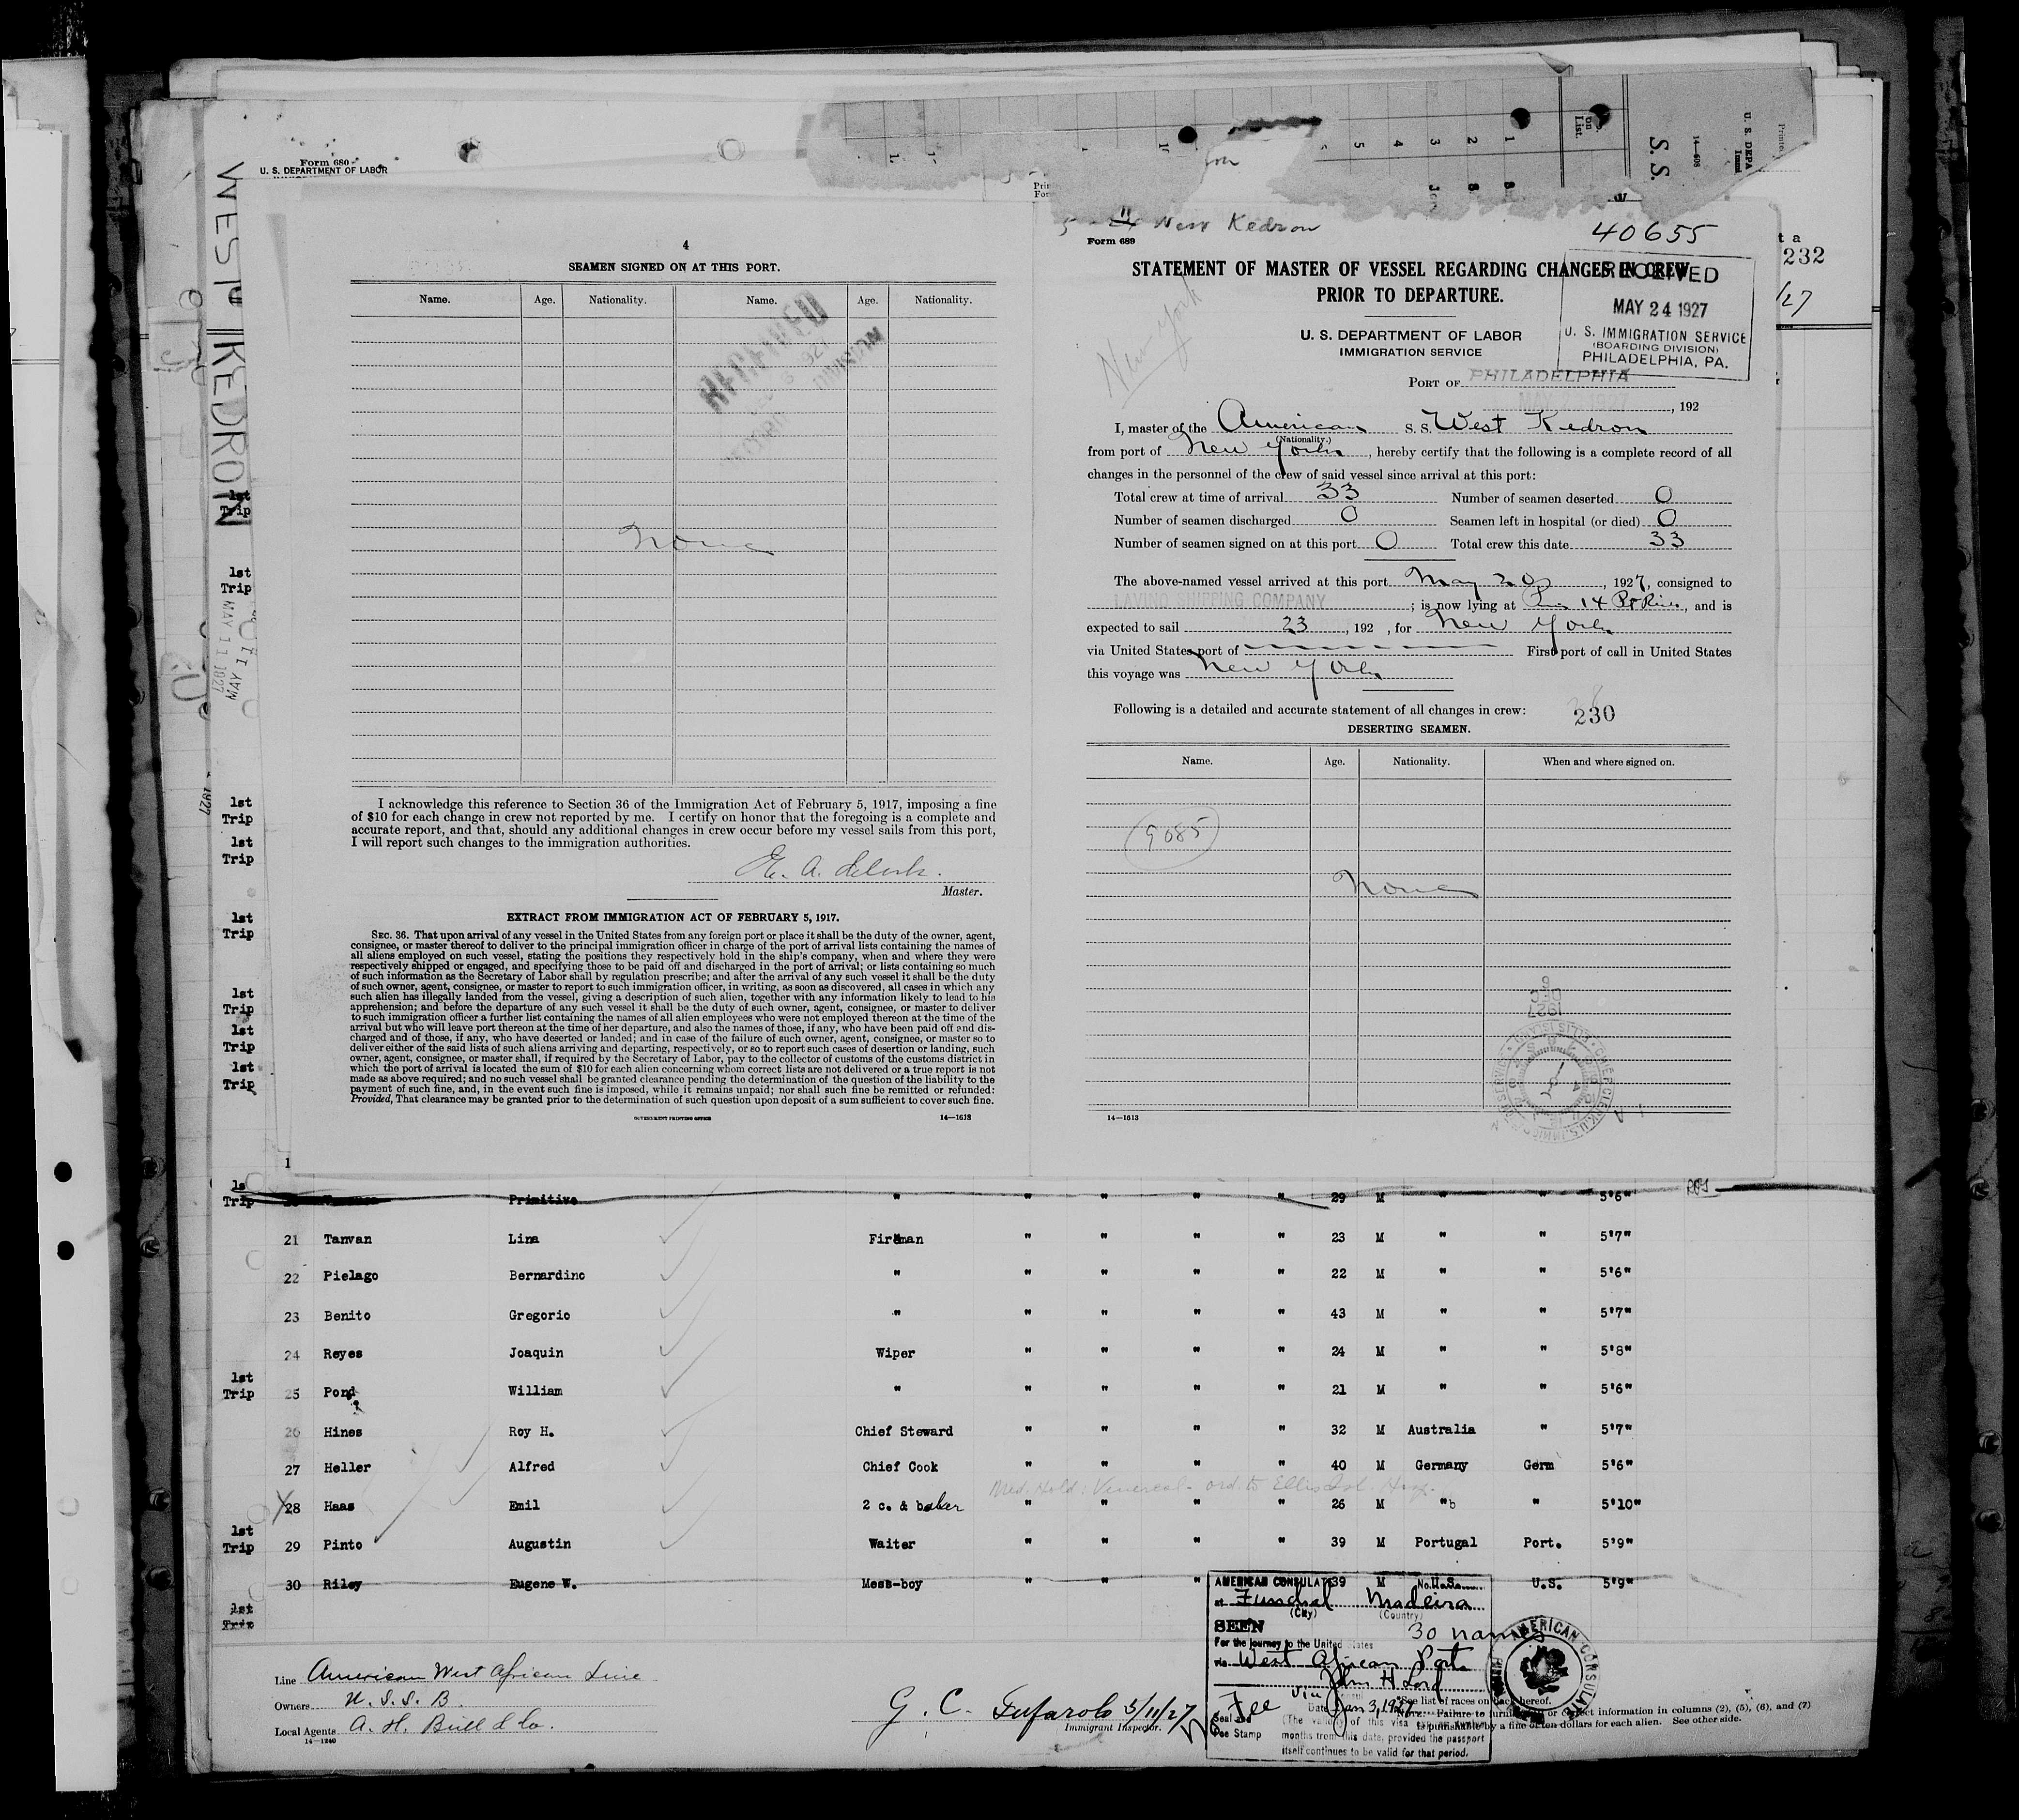 Form 680
U. S. DEPARTMENT OF LABOR
WEST KEDRON
4
SEAMEN SIGNED ON AT THIS PORT.
Name. Age. Nationality. Name. Age. Nationality.
None
I acknowledge this reference to Section 36 of the Immigration Act of February 5, 1917, imposing a fine
of $10 for each change in crew not reported by me. I certify on honor that the foregoing is a complete and
accurate report, and that, should any additional changes in crew occur before my vessel sails from this port,
I will report such changes to the immigration authorities.
E. A.
Master.
EXTRACT FROM IMMIGRATION ACT OF FEBRUARY 5, 1917.
SEC. 36. That upon arrival of any vessel in the United States from any foreign port or place it shall be the duty of the owner, agent,
consignee, or master thereof to deliver to the principal immigration officer in charge of the port of arrival lists containing the names of
all aliens employed on such vessel, stating the positions they respectively hold in the ship's company, when and where they were
respectively shipped or engaged, and specifying those to be paid off and discharged in the port of arrival; or lists containing so much
of such information as the Secretary of Labor shall by regulation prescribe; and after the arrival of any such vessel it shall be the duty
of such owner, agent, consignee, or master to report to such immigration officer, in writing, as soon as discovered, all cases in which any
such alien has illegally landed from the vessel, giving a description of such alien, together with any information likely to lead to his
apprehension; and before the departure of any such vessel it shall be the duty of such owner, agent, consignee, or master to deliver
to such immigration officer a further list containing the names of all alien employees who were not employed thereon at the time of the
arrival but who will leave port thereon at the time of her departure, and also the names of those, if any, who have been paid off and dis-
charged and of those, if any, who have deserted or landed; and in case of the failure of such owner, agent, consignee, or master so to
deliver either of the said lists of such aliens arriving and departing, respectively, or so to report such cases of desertion or landing, such
owner, agent, consignee, or master shall, if required by the Secretary of Labor, pay to the collector of customs of the customs district in
which the port of arrival is located the sum of $10 for each alien concerning whom correct lists are not delivered or a true report is not
made as above required; and no such vessel shall be granted clearance pending the determination of the question of the liability to the
payment of such fine, and, in the event such fine is imposed, while it remains unpaid; nor shall such fine be remitted or refunded:
Provided, That clearance may be granted prior to the determination of such question upon deposit of a sum sufficient to cover such fine.
GOVERNMENT PRINTING OFFICE 14—1613
West Kedron
40655
Form 689
STATEMENT OF MASTER OF VESSEL REGARDING CHANGES IN CREW
PRIOR TO DEPARTURE.
RECEIVED
MAY 24 1927
U. S. IMMIGRATION SERVICE
(BOARDING DIVISION)
PHILADELPHIA, PA.
New York
U. S. DEPARTMENT OF LABOR
IMMIGRATION SERVICE
PORT OF PHILADELPHIA
, 192
I, master of the American S. S. West Kedron
(Nationality.)
from port of New York, hereby certify that the following is a complete record of all
changes in the personnel of the crew of said vessel since arrival at this port:
Total crew at time of arrival 33 Number of seamen deserted 0
Number of seamen discharged 0 Seamen left in hospital (or died) 0
Number of seamen signed on at this port 0 Total crew this date 33
The above-named vessel arrived at this port May 20, 1927, consigned to
LAVINO SHIPPING COMPANY; is now lying at 14, and is
expected to sail 23, 192 , for New York
via United States port of First port of call in United States
this voyage was New York
Following is a detailed and accurate statement of all changes in crew:
230
DESERTING SEAMEN.
Name. Age. Nationality. When and where signed on.
9085
None
14—1613
1st Trip Primitivo " " " " " 29 M " " 5'6"
21 Tanvan Lina Fireman " " " " 23 M " " 5'7"
22 Pielago Bernardino " " " " " 22 M " " 5'6"
23 Benito Gregorio " " " " " 43 M " " 5'7"
24 Reyes Joaquin Wiper " " " " 24 M " " 5'8"
1st Trip 25 Pond William " " " " " 21 M " " 5'6"
26 Hines Roy H. Chief Steward " " " " 32 M Australia " 5'7"
27 Heller Alfred Chief Cook " " " " 40 M Germany Germ 5'6"
Med. Hold: Venereal - ord. to Ellis Isl. Hosp.
28 Haas Emil 2 c. & baker " " " " 26 M " " 5'10"
1st Trip 29 Pinto Augustin Waiter " " " " 39 M Portugal Port. 5'9"
30 Riley Eugene W. Mess-boy " " " 39 M U.S. U.S. 5'9"
1st Trip
Line American West African Line
Owners U. S. S. B.
Local Agents A. H. Bull & Co.
14—1240
G. C. Tufarolo 5/11/27
Immigrant Inspector.
AMERICAN CONSULATE No.
at Funchal Madeira
(City) (Country)
SEEN
30 names
For the journey to the United States
via West African Ports
John H Lord
Fee
Date Jan 3, 1927
(The validity of this visa
months from this date, provided the passport
itself continues to be valid for that period.
Fee Stamp
AMERICAN CONSULATE
See list of races on back hereof.
NOTE.—Failure to furnish or correct information in columns (2), (5), (6), and (7)
is punishable by a fine of ten dollars for each alien. See other side.